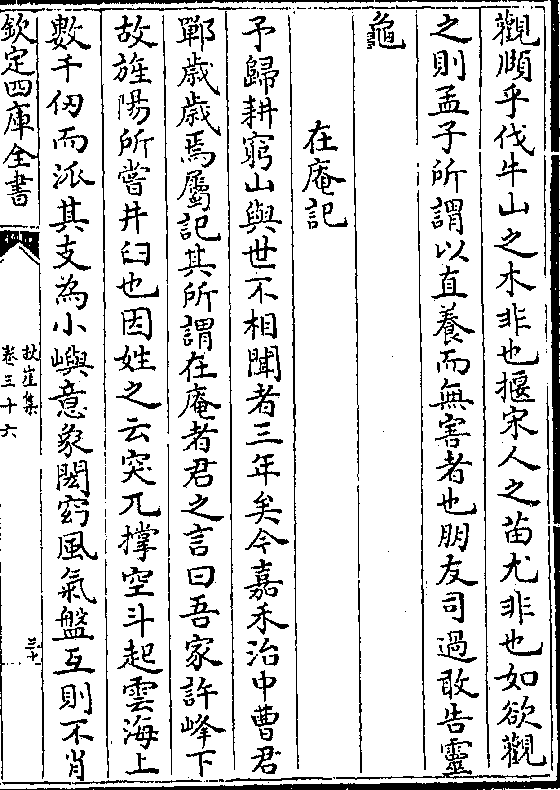 觀頤乎伐牛山之木非也揠宋人之苗尤非也如欲觀
之則孟子所謂以直養而無害者也朋友司過敢告靈
龜
在庵記
予歸耕窮山與世不相聞者三年矣今嘉禾治中曹君
鄲歲歲焉屬記其所謂在庵者君之言曰吾家許峰下
故旌陽所嘗井臼也因姓之云突兀撐空斗起雲海上
數千仞而派其支為小嶼意象閎窈風氣盤互則不肖
欽定四庫全書
牧萊集
卷三十六
三十